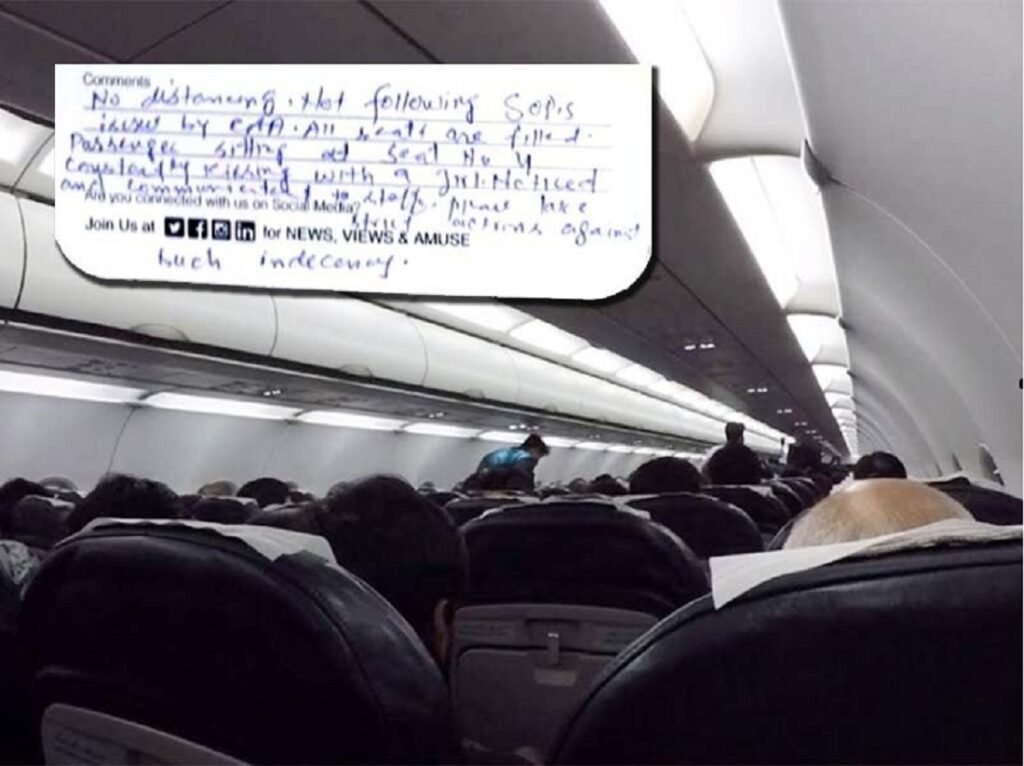 Comments
No distancing. Not following SOP,s
issued by CAA. All seats are filled.
Passenger sitting at Seat No 4
Constantly kissing with a Girl. Noticed
and communicated to staff. Please take
Are you connected with us on Social Media?
strict actions against
Join Us at for NEWS, VIEWS & AMUSE
such indecency.